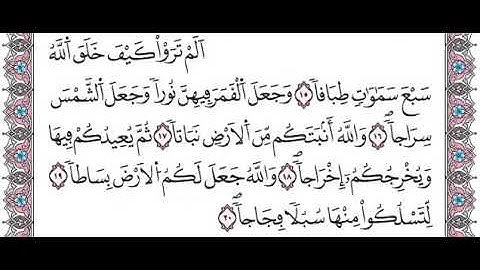 اَلَمْ تَرَوْا۟ كَيْفَ خَلَقَ اَ۬للَّهُ
سَبْعَ سَمَٰوَٰتٖ طِبَاقاٗ ١٥ وَجَعَلَ اَ۬لْقَمَرَ فِيهِنَّ نُوراٗ وَجَعَلَ اَ۬لشَّمْسَ
سِرَاجاٗ ١٦ وَاللَّهُ أَنۢبَتَكُم مِّنَ اَ۬لَارْضِ نَبَاتاٗ ١٧ ثُمَّ يُعِيدُكُمْ فِيهَا
وَيُخْرِجُكُمُۥٓ إِخْرَاجاٗ ١٨ وَاللَّهُ جَعَلَ لَكُمُ اُ۬لَارْضَ بِسَاطاٗ ١٩
لِّتَسْلُكُوا۟ مِنْهَا سُبُلاٗ فِجَاجاٗ ٢٠